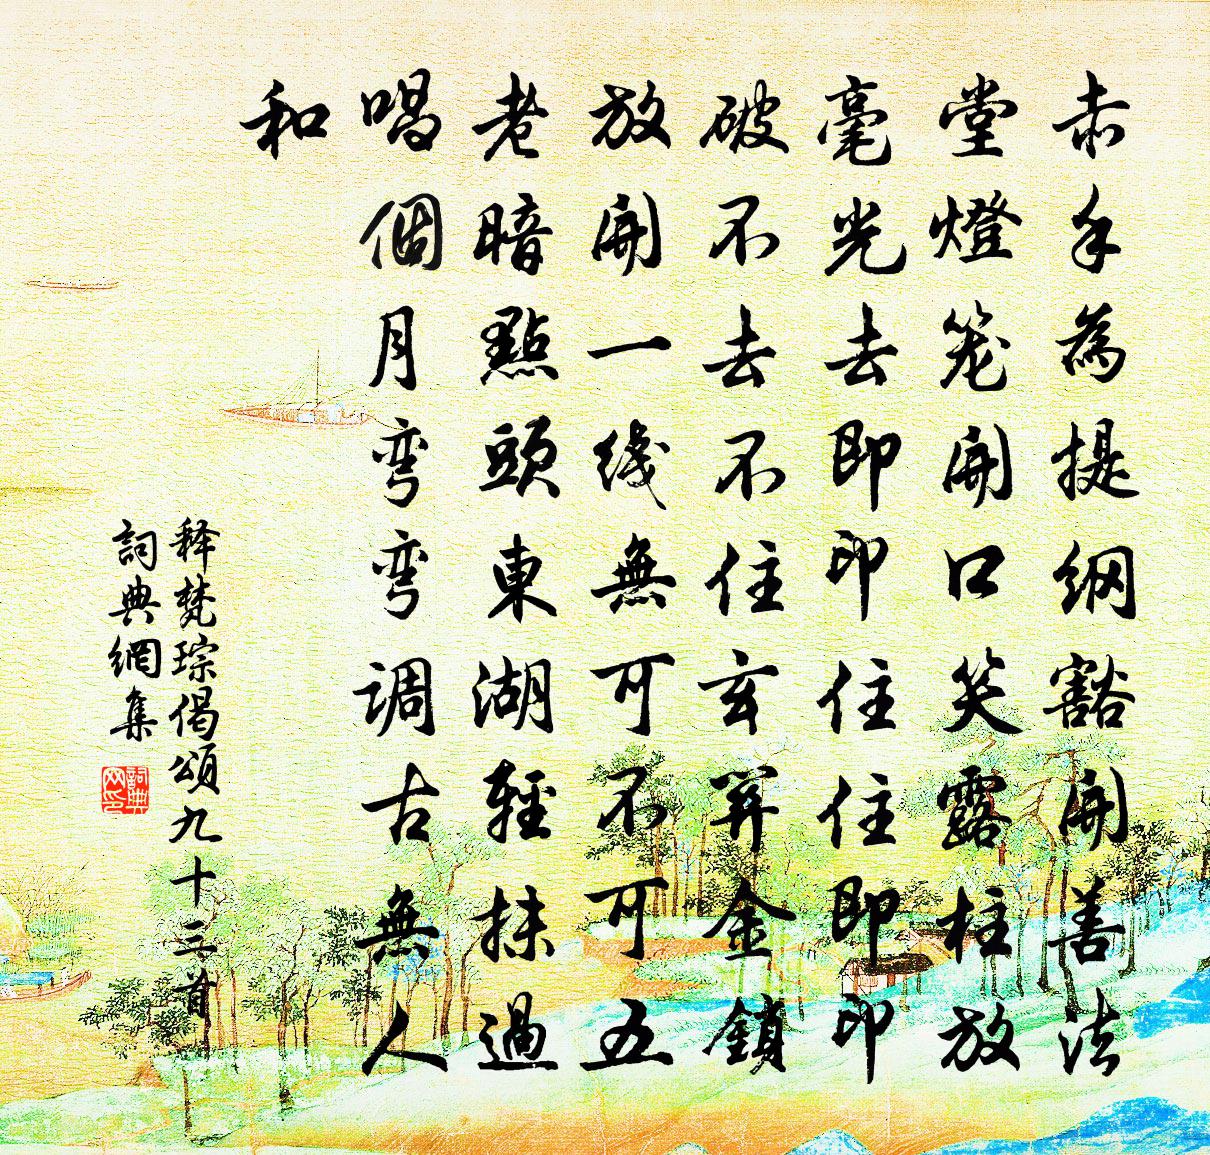 赤手為提纲豁開善法
堂燈笼開口笑露柱放
毫光去即印住住即印
破不去不住玄關金鎖
放開一线無可不可五
老暗點頭東湖輕抹過
唱個月彎彎调古無人
和
释梵琮偈頌九十三首
詞典網集
詞典网印